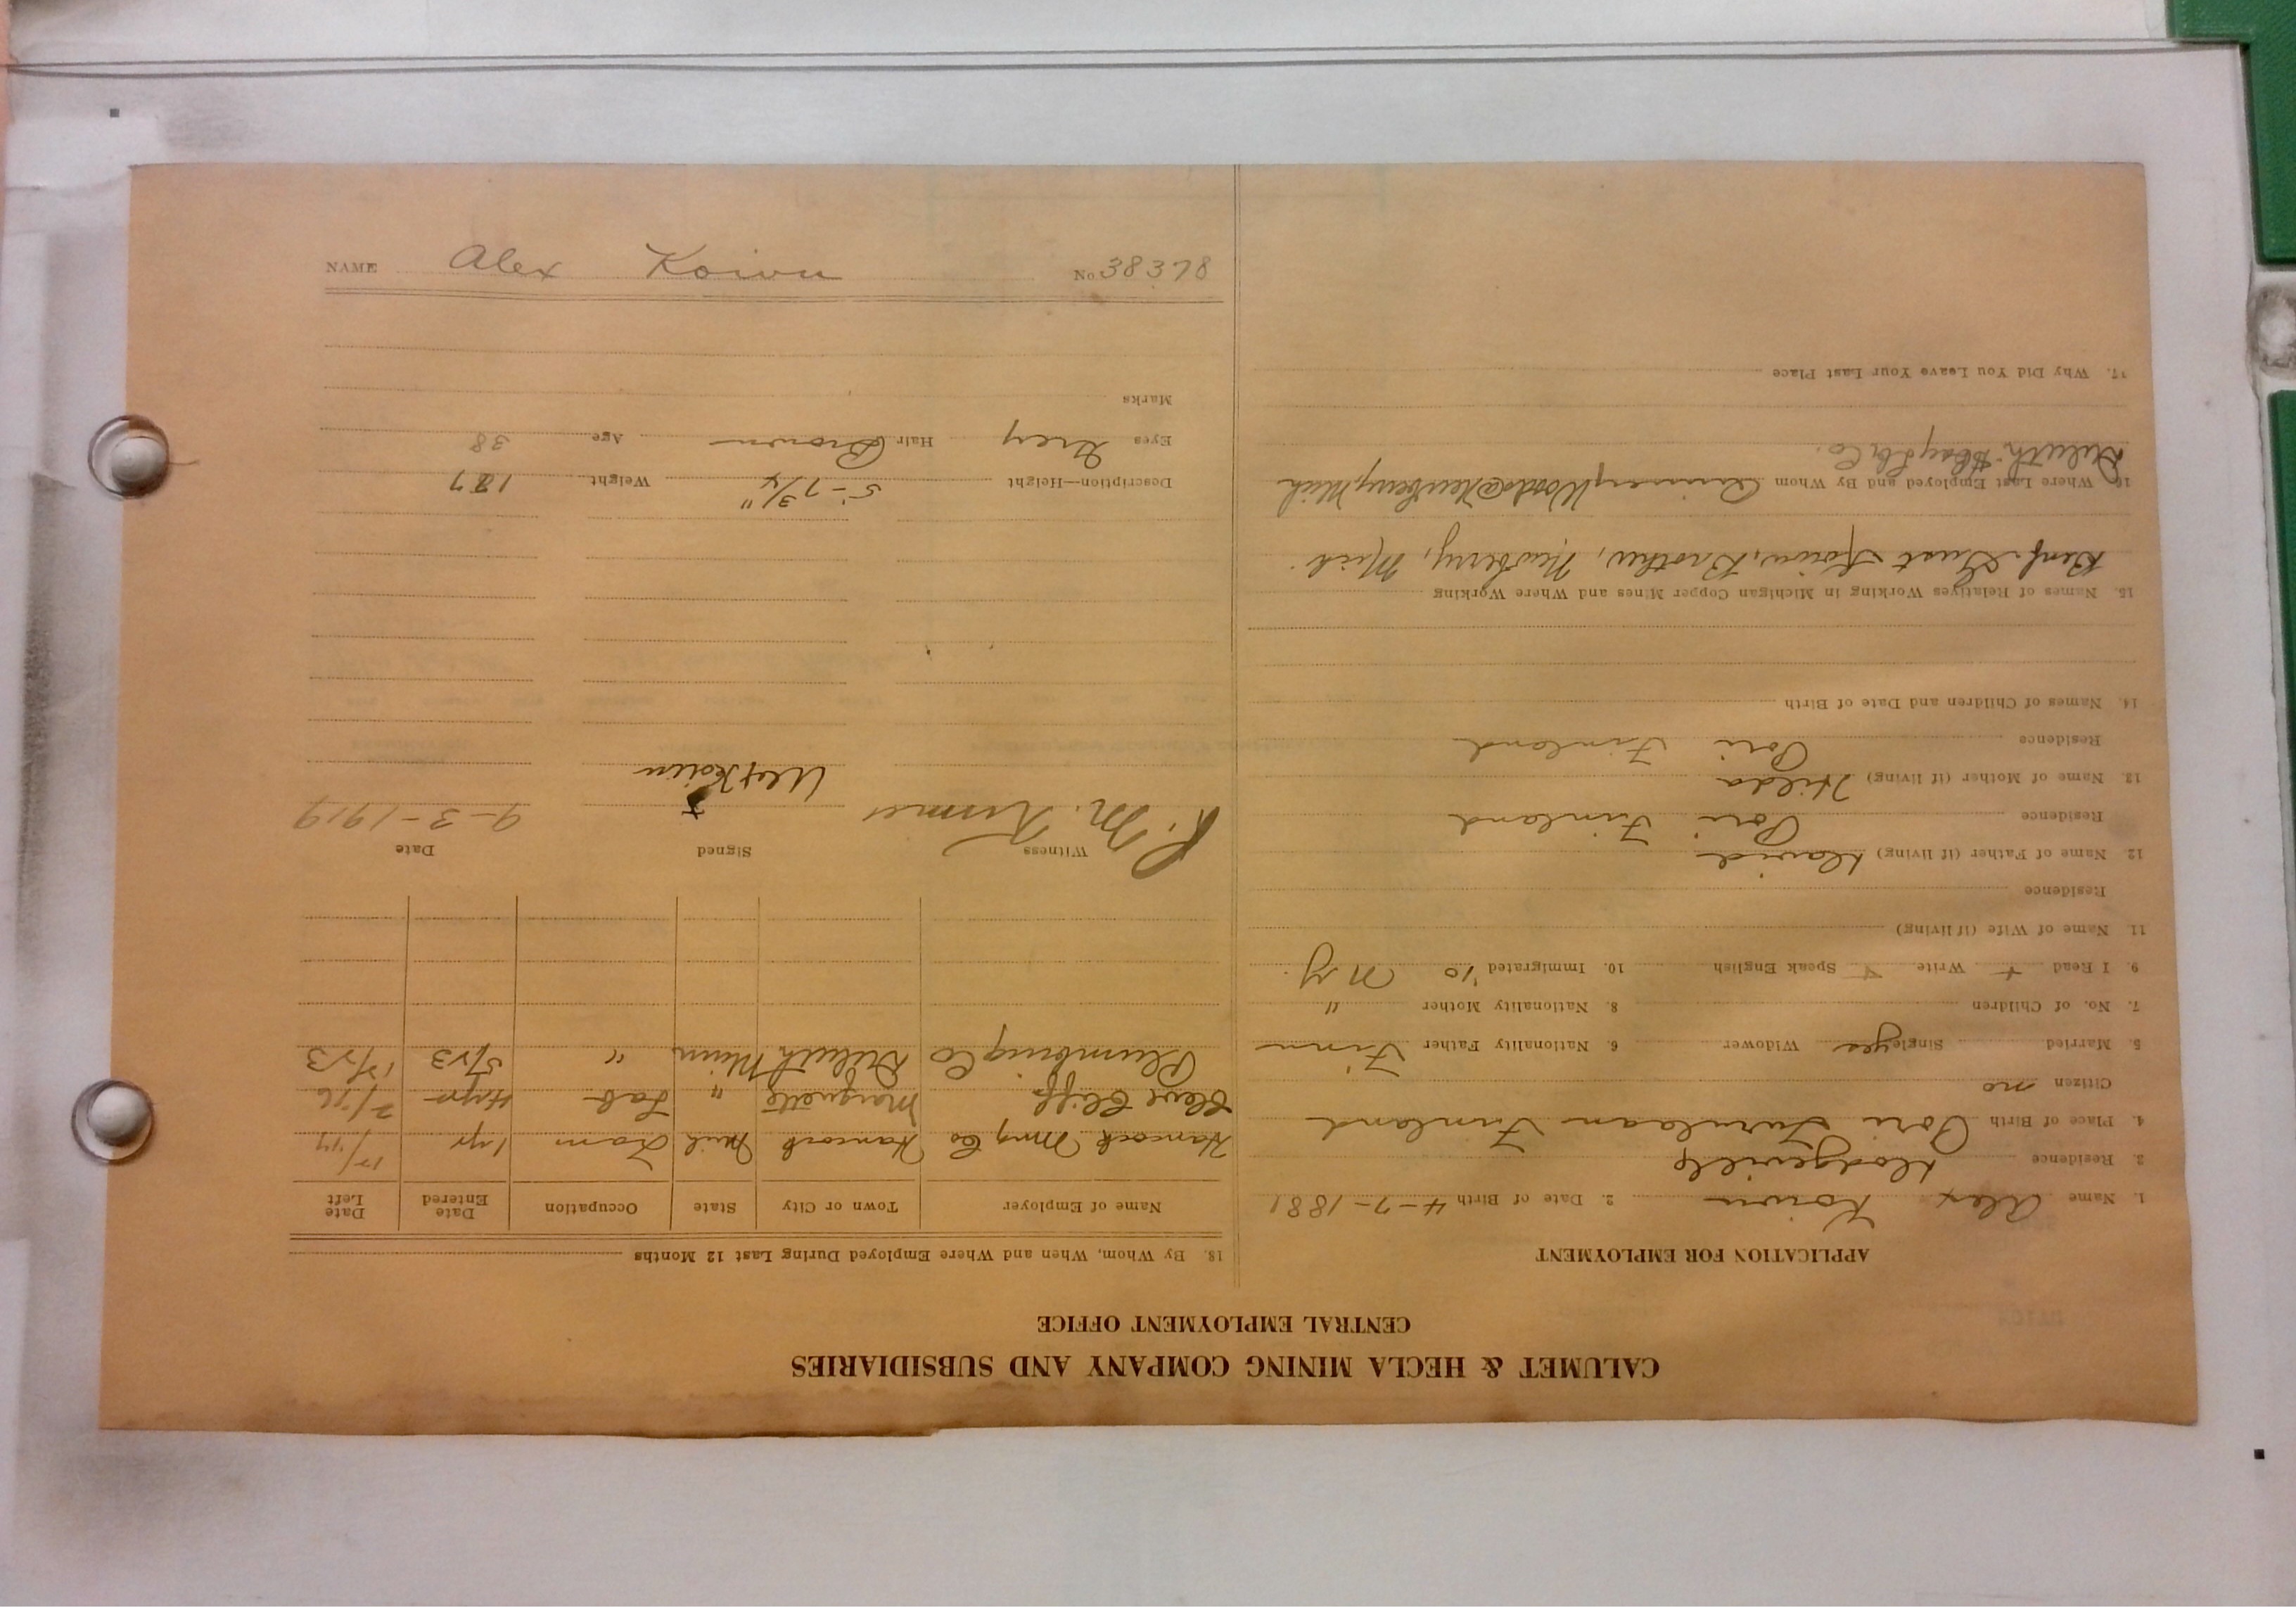 CALUMET & HECLA MINING COMPANY AND SUBSIDIARIES
CENTRAL EMPLOYMENT OFFICE
APPLICATION FOR EMPLOYMENT
1. Name Alex Koivu 2. Date of Birth 4-7-1881
3. Residence Dodgeville
4. Place of Birth Pori Turulaan Finland
Citizen no
5. Married Single yes Widower 6. Nationality Father Finn
7. No. of Children 8. Nationality Mother "
9. I Read + Write + Speak English 10. Immigrated '10 NY
11. Name of Wife (if living)
Residence
12. Name of Father (if living) David
Residence Pori Finland
13. Name of Mother (if living) Hilda
Residence Pori Finland
14. Names of Children and Date of Birth
15. Names of Relatives Working in Michigan Copper Mines and Where Working
Benf. Gust Koivu, Brother, Newberry, Mich.
16. Where Last Employed and By Whom Woods @ Newberry, Mich
Duluth Co.
17. Why Did You Leave Your Last Place
18. By Whom, When and Where Employed During Last 12 Months
Name of Employer Town or City State Occupation Date Entered Date Left
Hancock Mng Co Hancock Mich Tram 1 yr 12/17
Cleve Cliffs Marquette " Lab 4 yr 2/16
Plumbing Co Duluth Minn " 5/23 12/23
Witness Signed Date
R. M. 9-3-1919
Alex Koivu
Description—Height 5-7 3/4" Weight 127
Eyes Grey Hair Brown Age 38
Marks
NAME Alex Koivu No. 38378